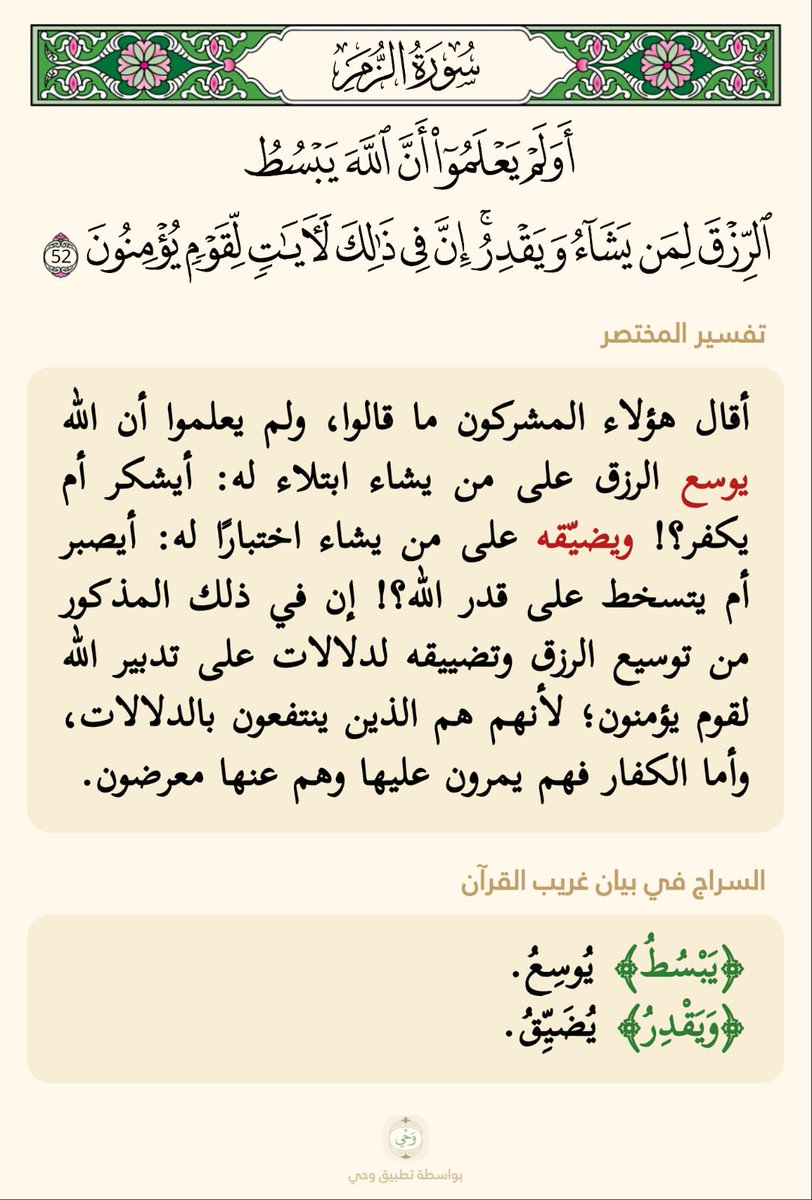 سُورَةُ الزُّمَرِ
أَوَلَمْ يَعْلَمُوٓا۟ أَنَّ ٱللَّهَ يَبْسُطُ
ٱلرِّزْقَ لِمَن يَشَآءُ وَيَقْدِرُ ۚ إِنَّ فِى ذَٰلِكَ لَـَٔايَـٰتٍ لِّقَوْمٍ يُؤْمِنُونَ 52
تفسير المختصر
أقال هؤلاء المشركون ما قالوا، ولم يعلموا أن الله
يوسع الرزق على من يشاء ابتلاء له: أيشكر أم
يكفر؟! ويضيّقه على من يشاء اختبارًا له: أيصبر
أم يتسخط على قدر الله؟! إن في ذلك المذكور
من توسيع الرزق وتضييقه لدلالات على تدبير الله
لقوم يؤمنون؛ لأنهم هم الذين ينتفعون بالدلالات،
وأما الكفار فهم يمرون عليها وهم عنها معرضون.
السراج في بيان غريب القرآن
﴿يَبْسُطُ﴾ يُوسِعُ.
﴿وَيَقْدِرُ﴾ يُضَيِّقُ.
وَحْي
بواسطة تطبيق وحي